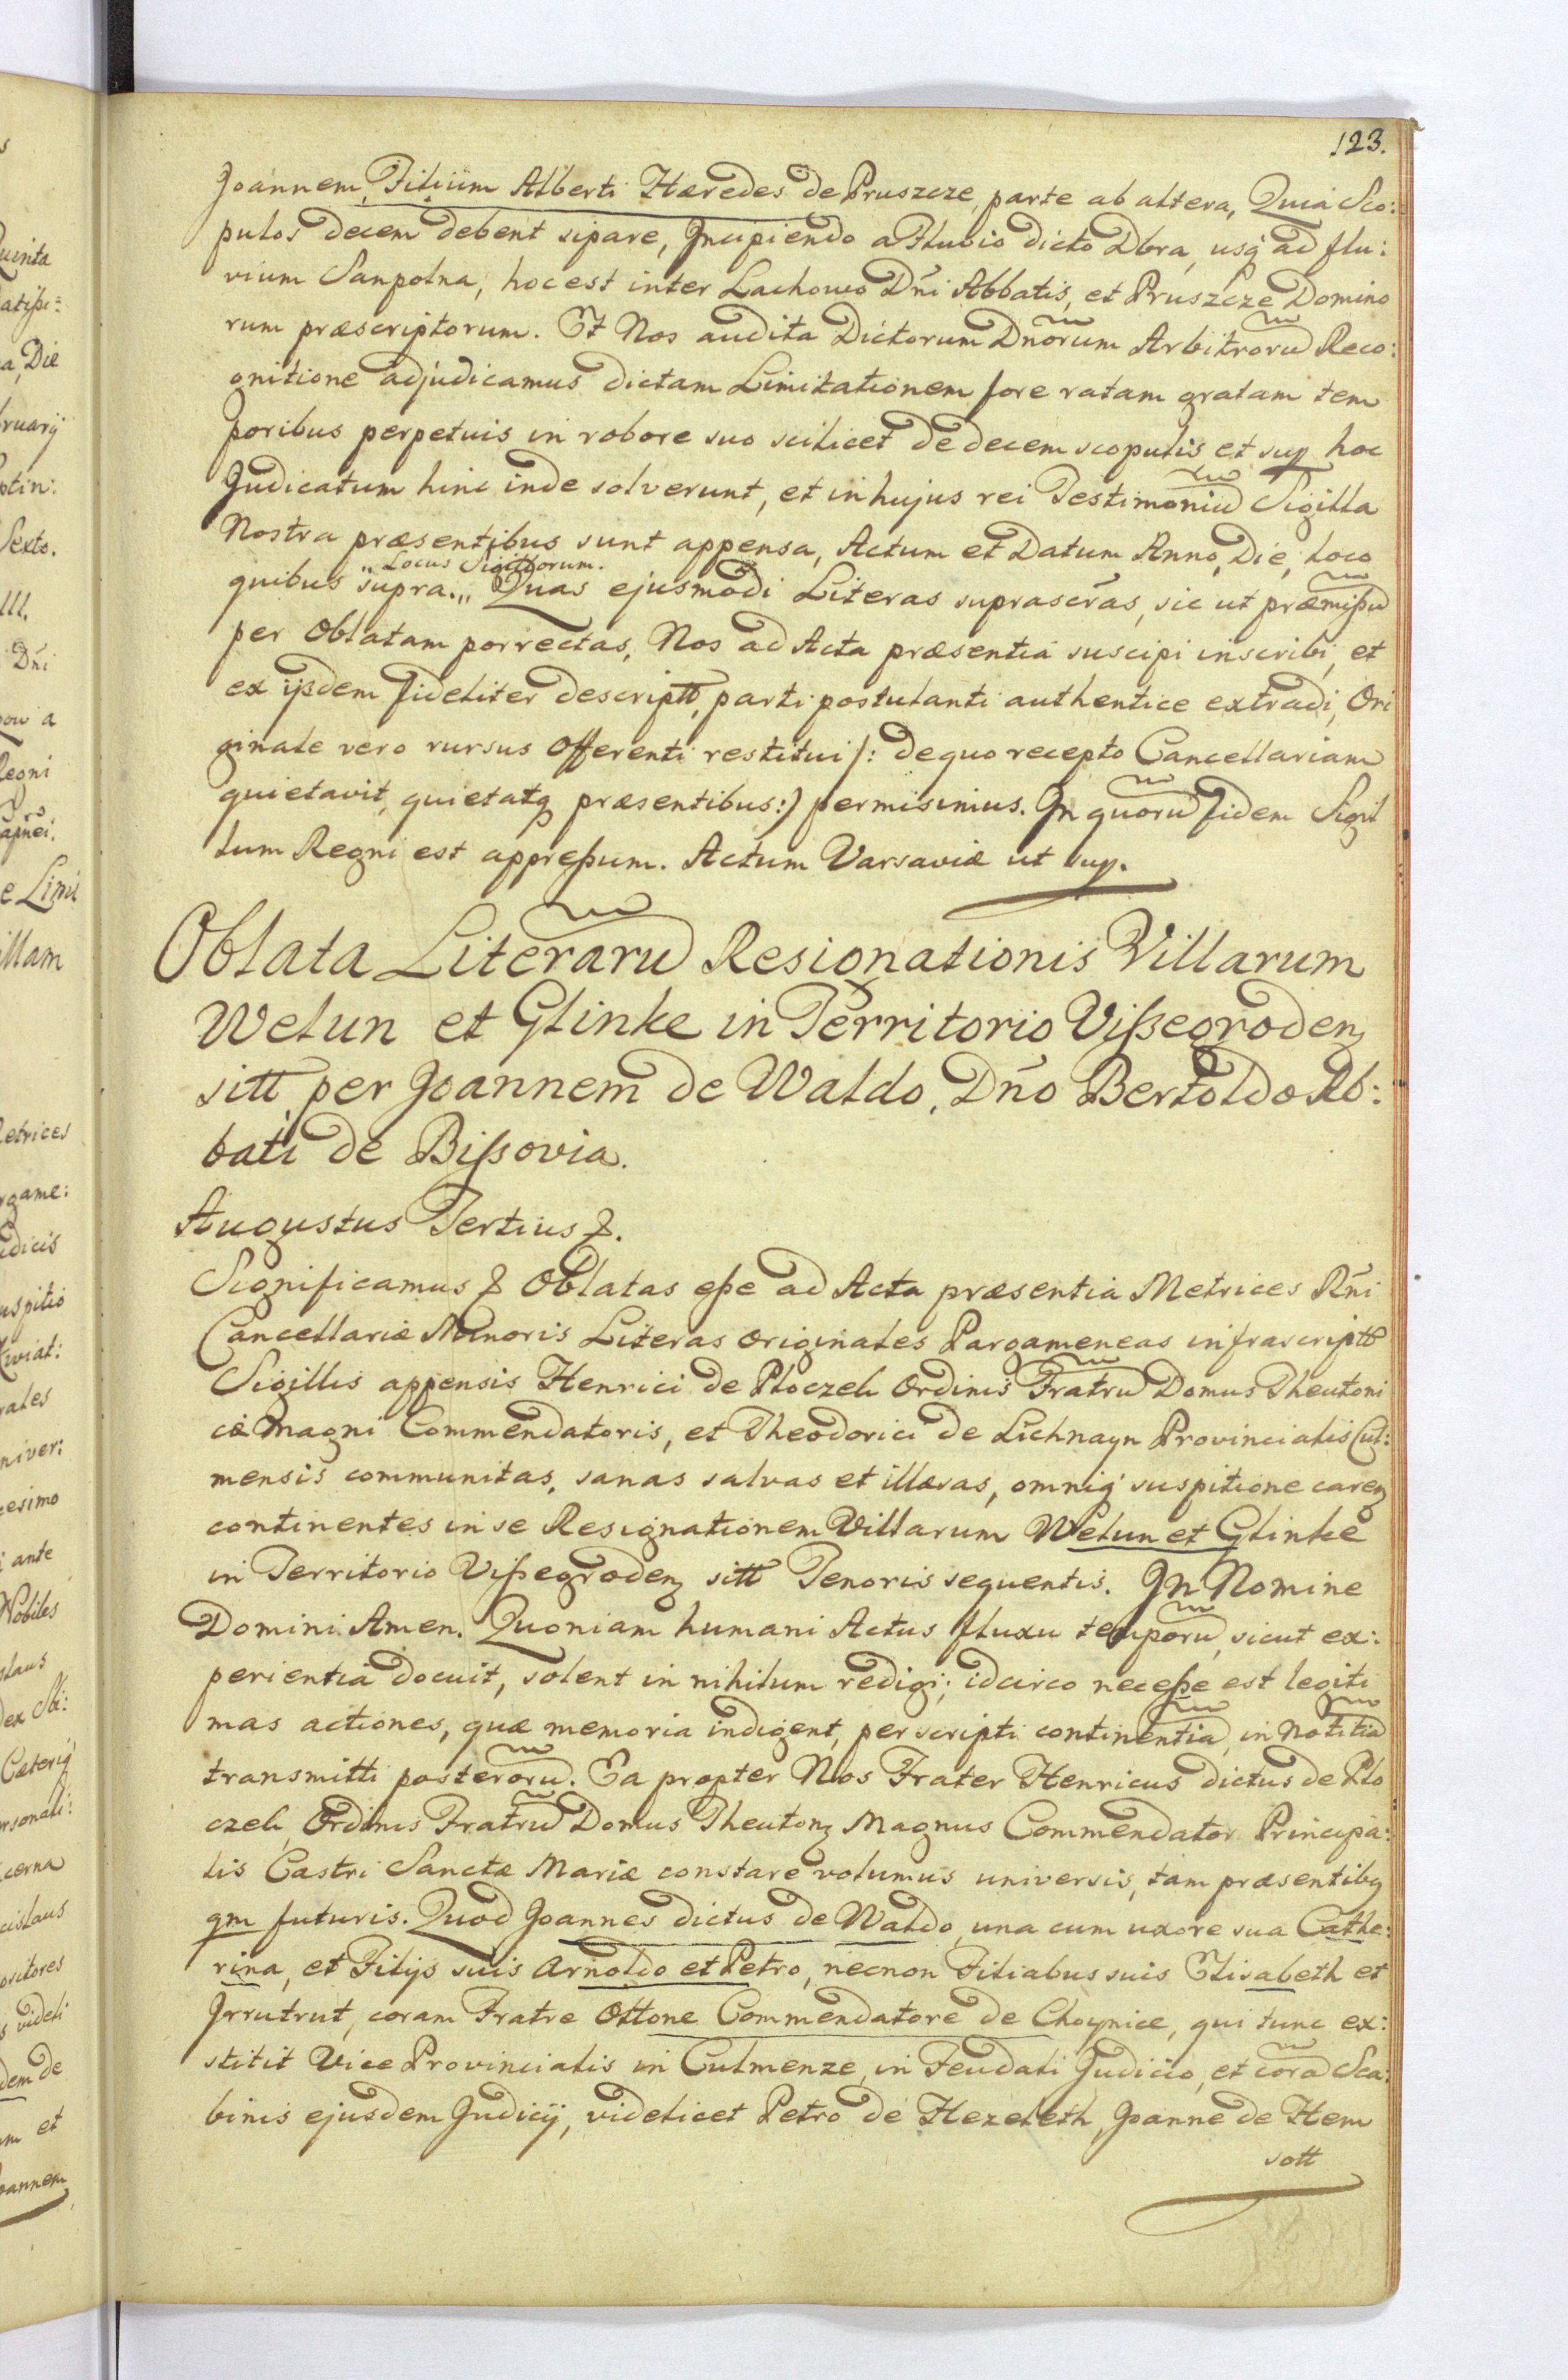 123.
Joannem, Filium Alberti Hæredes de Pruszcze, parte ab altera, Quia Sco:
pulos decem debent sipare, Incipiendo a Fluvio dicto Dbra, usq́ ad flu:
vium Sanpolna, hoc est inter Lachowo Dn̄i Abbatis, et Pruszcze Domino
rum præscriptorum. Et Nos audita Dictorum Dnõrum Arbitrorũ Reco:
gnitione adjudicamus dictam Limitationem fore ratam gratam tem
poribus perpetuis in robore suo scilicet de decem scopulis et sup hoc
Judicatum hinc inde solverunt, et in hujus rei Testimoniũ Sigilla
Nostra præsentibus sunt appensa, Actum et Datum Anno, Die, Loco
„Locus Sigillorum.
quibus supra.„ Quas ejusmodi Literas suprascr̃as, sic ut præmißũ
per Oblatam porrectas, Nos ad Acta præsentia suscipi inscribi, et
ex ijsdem fideliter descriptt, parti postulanti authentice extradi, Ori
ginale vero rursus Offerenti restitui /: de quo recepto Cancellariam
quietavit, quietatq præsentibus:) permisimus. In quorũ fidem Sigil
lum Regni est appreßum. Actum Varsaviæ ut sup.
Oblata Literarũ Resignationis Villarum
Welun et Glinke in Territorio Vißegrodenz
sitt per Joannem de Waldo, Dn̄o Bertoldo Ab:
bati de Bißovia.
Augustus Tertius &.
Significamus & Oblatas eße ad Acta præsentia Metrices Rn̄i
Cancellariæ Minoris Literas originales Pargameneas infrascriptt
Sigillis appensis Henrici de Ploczeh Ordinis Fratrũ Domus Theutoni
cæ Magni Commendatoris, et Theodorici de Lichnayn Provincialis Cul:
mensis communitas, sanas salvas et illæsas, omniq́ suspitione carenz
continentes in se Resignationem Villarum Welun et Glinke
in Territorio Vißegrodenz sitt Tenoris sequentis. In Nomine
Domini Amen. Quoniam humani Actus fluxu temporũ, sicut ex:
perientia docuit, solent in nihilum redigi; idcirco neceße est legiti
mas actiones, quæ memoria indigent, per scripti continentiã, in notitiã
transmitti posterorũ. Ea propter Nos Frater Henricus dictus de Plo
czeh, Ordinis Fratrũ Domus Theutonz Magnus Commendator Principa:
lis Castri Sanctæ Mariæ constare volumus universis, tam præsentibq
qm futuris. Quod Joannes dictus de Waldo, una cum uxore sua Cathe:
rina, et Filijs suis Arnoldo et Petro, necnon Filiabus suis Elisabeth et
Irrutrut, coram Fratre Ottone Commendatore de Choynice, qui tunc ex:
stitit Vice Provincialis in Culmenze, in Feudali Judicio, et corã Sca:
binis ejusdem Judicij, videlicet Petro de Hezeleth, Joanne de Hem
sott